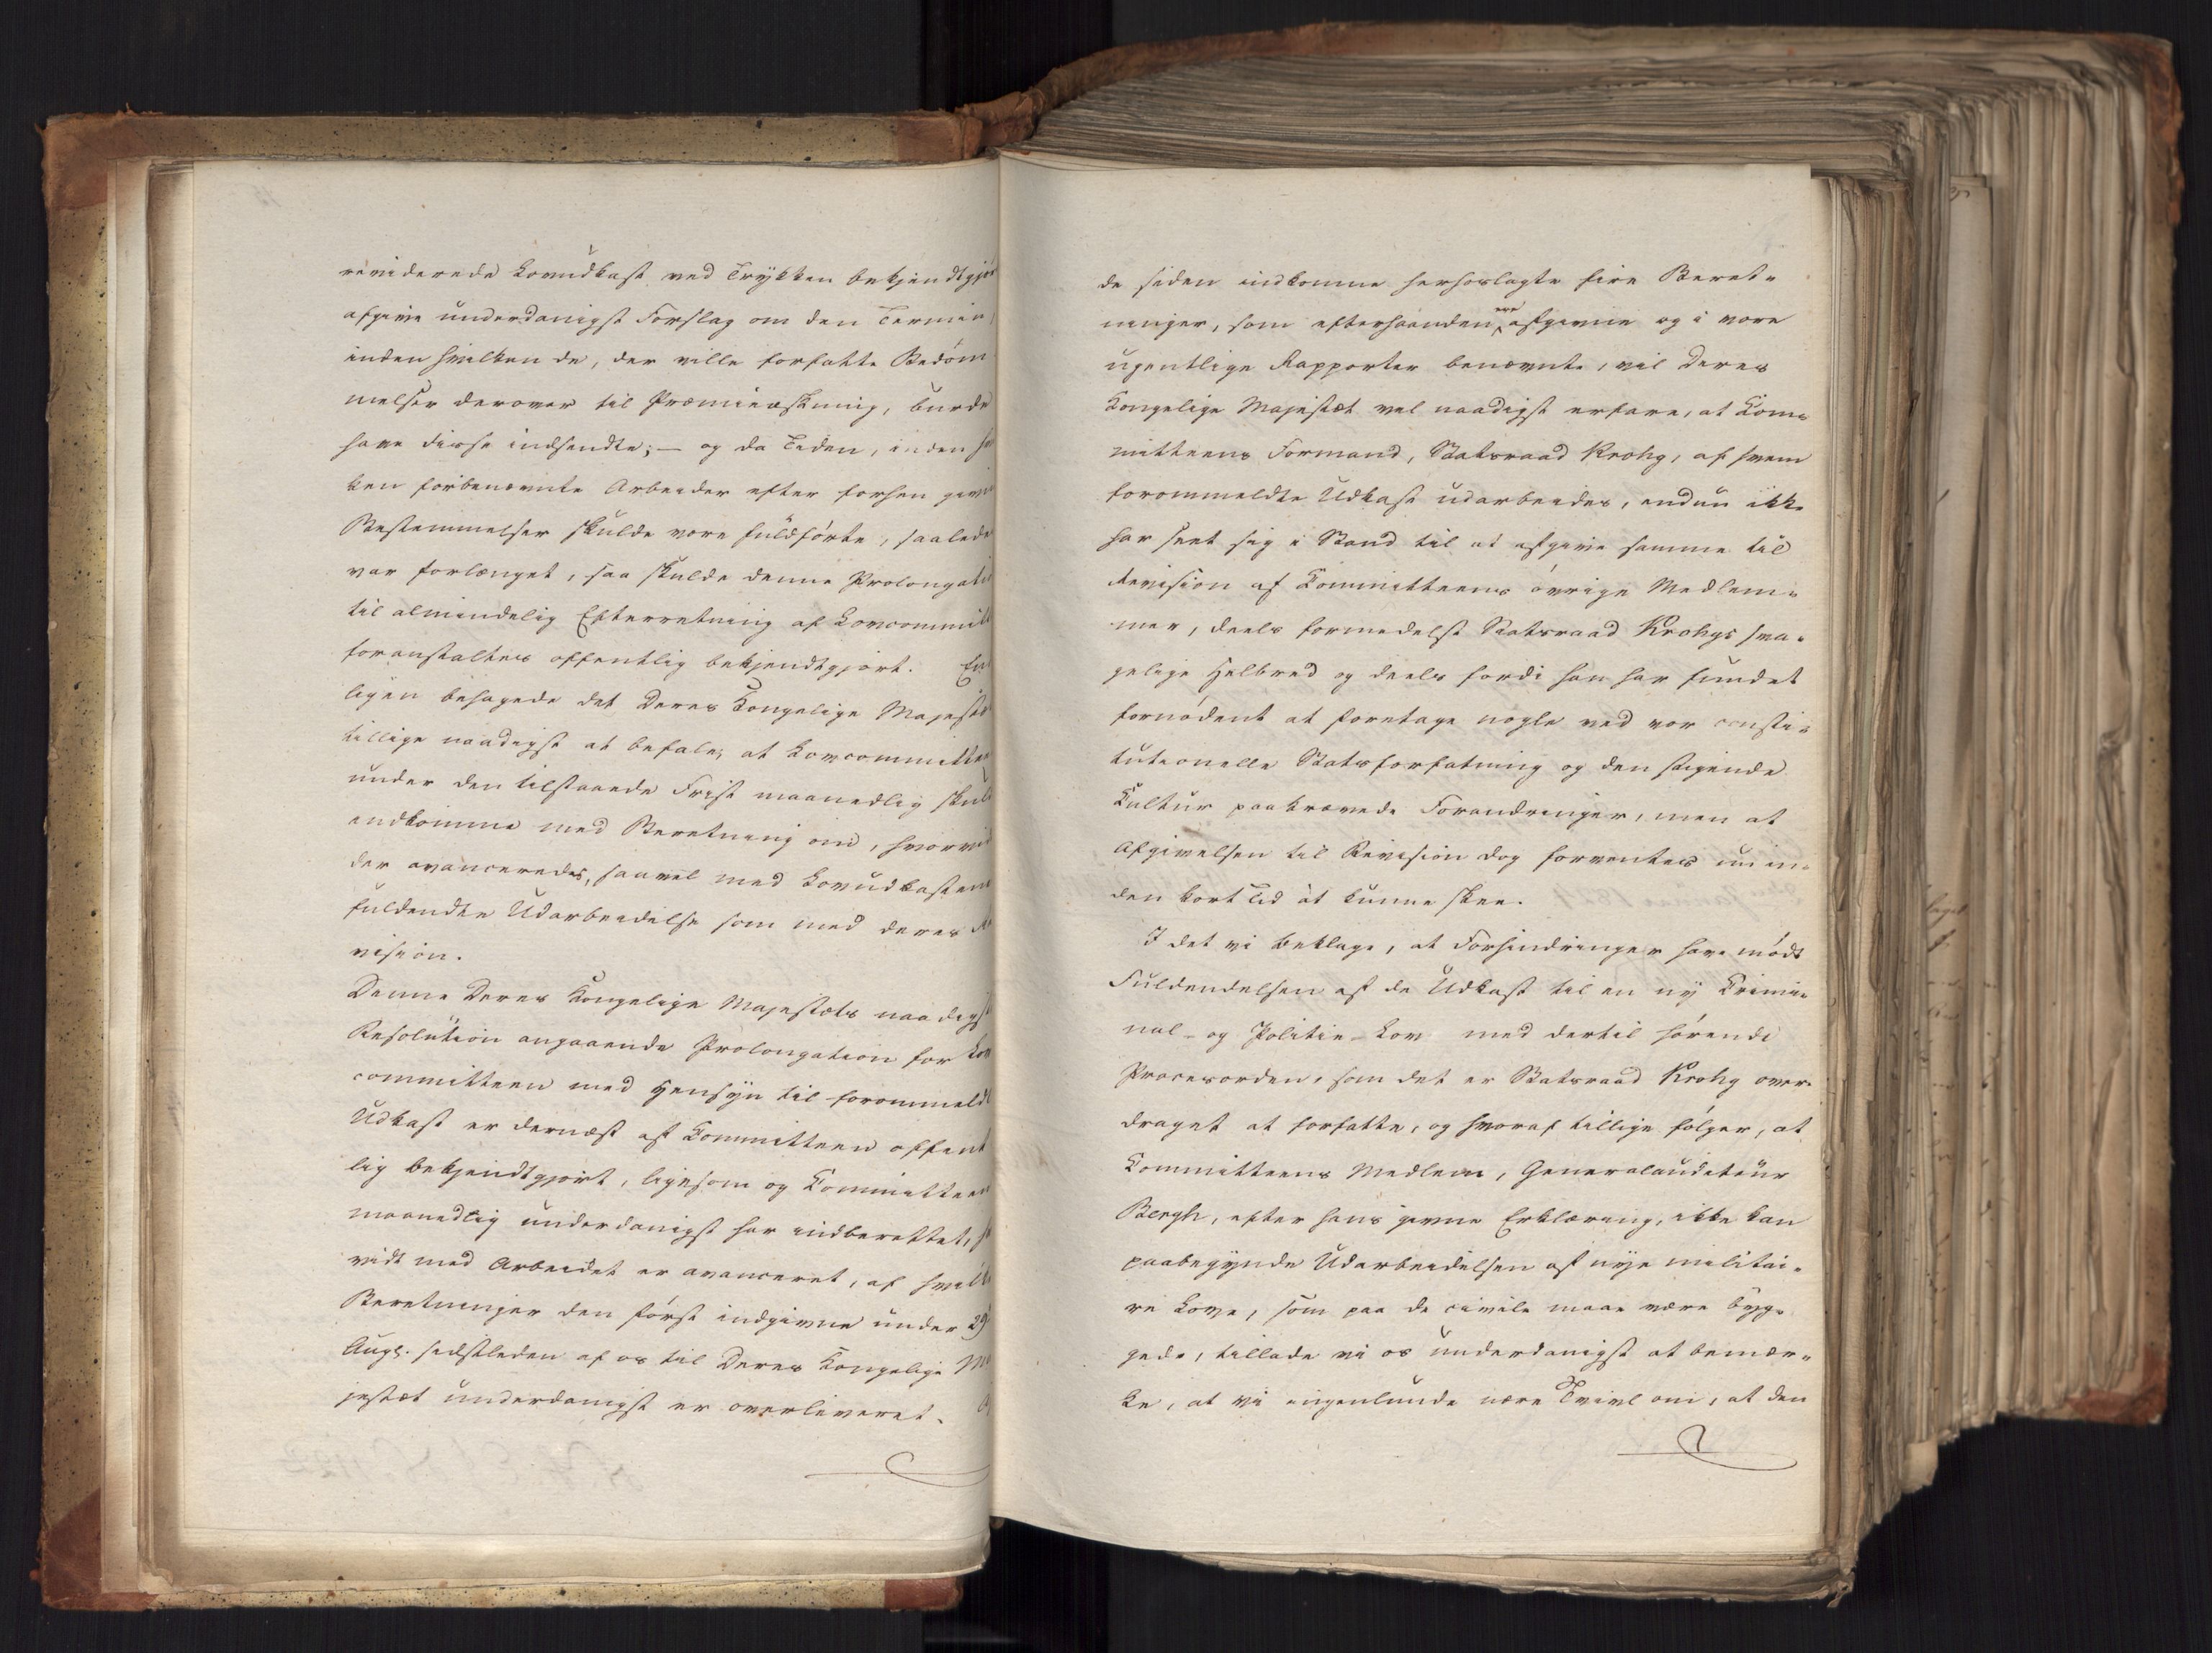 reviderede Lovudkast ved Trykken bekjendtgjør
afgive underdanigst Forslag om den Termin,
inden hvilken de, der ville forfatte Bedøm
melser derover til Præmieæskning, burde
have disse indsendte; — og da Tiden, inden hvil
ken forbenævnte Arbeider efter forhen givne
Bestemmelser skulde være fuldførte, saaledes
var forlænget, saa skulde denne Prolongation
til almindelig Efterretning af Lovcommitteen
foranstaltes offentlig bekjendtgjort. End
ligen behagede det Deres Kongelige Majestæt
tillige naadigst at befale, at Lovcommitteen
under den tilstaaede Frist maanedlig skulde
indkomme med Beretning om, hvorvidt
der avanceredes, saavel med Lovudkastenes
fuldendte Udarbeidelse som med deres Re
vision.
Denne Deres Kongelige Majestæts naadigste
Resolution angaaende Prolongation for Lov
committeen med Hensyn til forommeldte
Udkast er dernæst af Committeen offent
lig bekjendtgjort, ligesom og Committeen
maanedlig underdanigst har indberettet, hvor
vidt med Arbeidet er avanceret, af hvilke
Beretninger den først indgivne under 29
Augs. sidstleden af os til Deres Kongelige Ma
jestæt underdanigst er overleveret.
de siden indkomne herhoslagte fire Beret-
ninger, som efterhaanden ere afgivne og i vore
ugentlige Rapporter benævnte, vil Deres
Kongelige Majestæt vel naadigst erfare, at Com-
mitteens Formand, Statsraad Krohg, af hvem
forommeldte Udkast udarbeides, endnu ikke
har seet sig i Stand til at afgive samme til
Revision af Committeens øvrige Medlem-
mer, deels formedelst Statsraad Krohgs sva-
gelige Helbred og deels fordi han har fundet
fornødent at foretage nogle ved vor consti-
tutionelle Statsforfatning og den stigende
Cultur paakrævede Forandringer, men at
Afgivelsen til Revision dog forventes nu in-
den kort Tid at kunne skee.
I det vi beklage, at Forhindringer have mødt
Fuldendelsen af de Udkast til en ny Crimi-
nal- og Politie-Lov med dertil hørende
Procesorden, som det er Statsraad Krohg over-
draget at forfatte, og hvoraf tillige følger, at
Committeens Medlem, Generalauditeur
Bergh, efter hans givne Erklæring, ikke kan
paabegynde Udarbeidelsen af nye militai-
re Love, som paa de civile maae være byg-
gede, tillade vi os underdanigst at bemær-
ke, at vi ingenlunde nære Tvivl om, at den